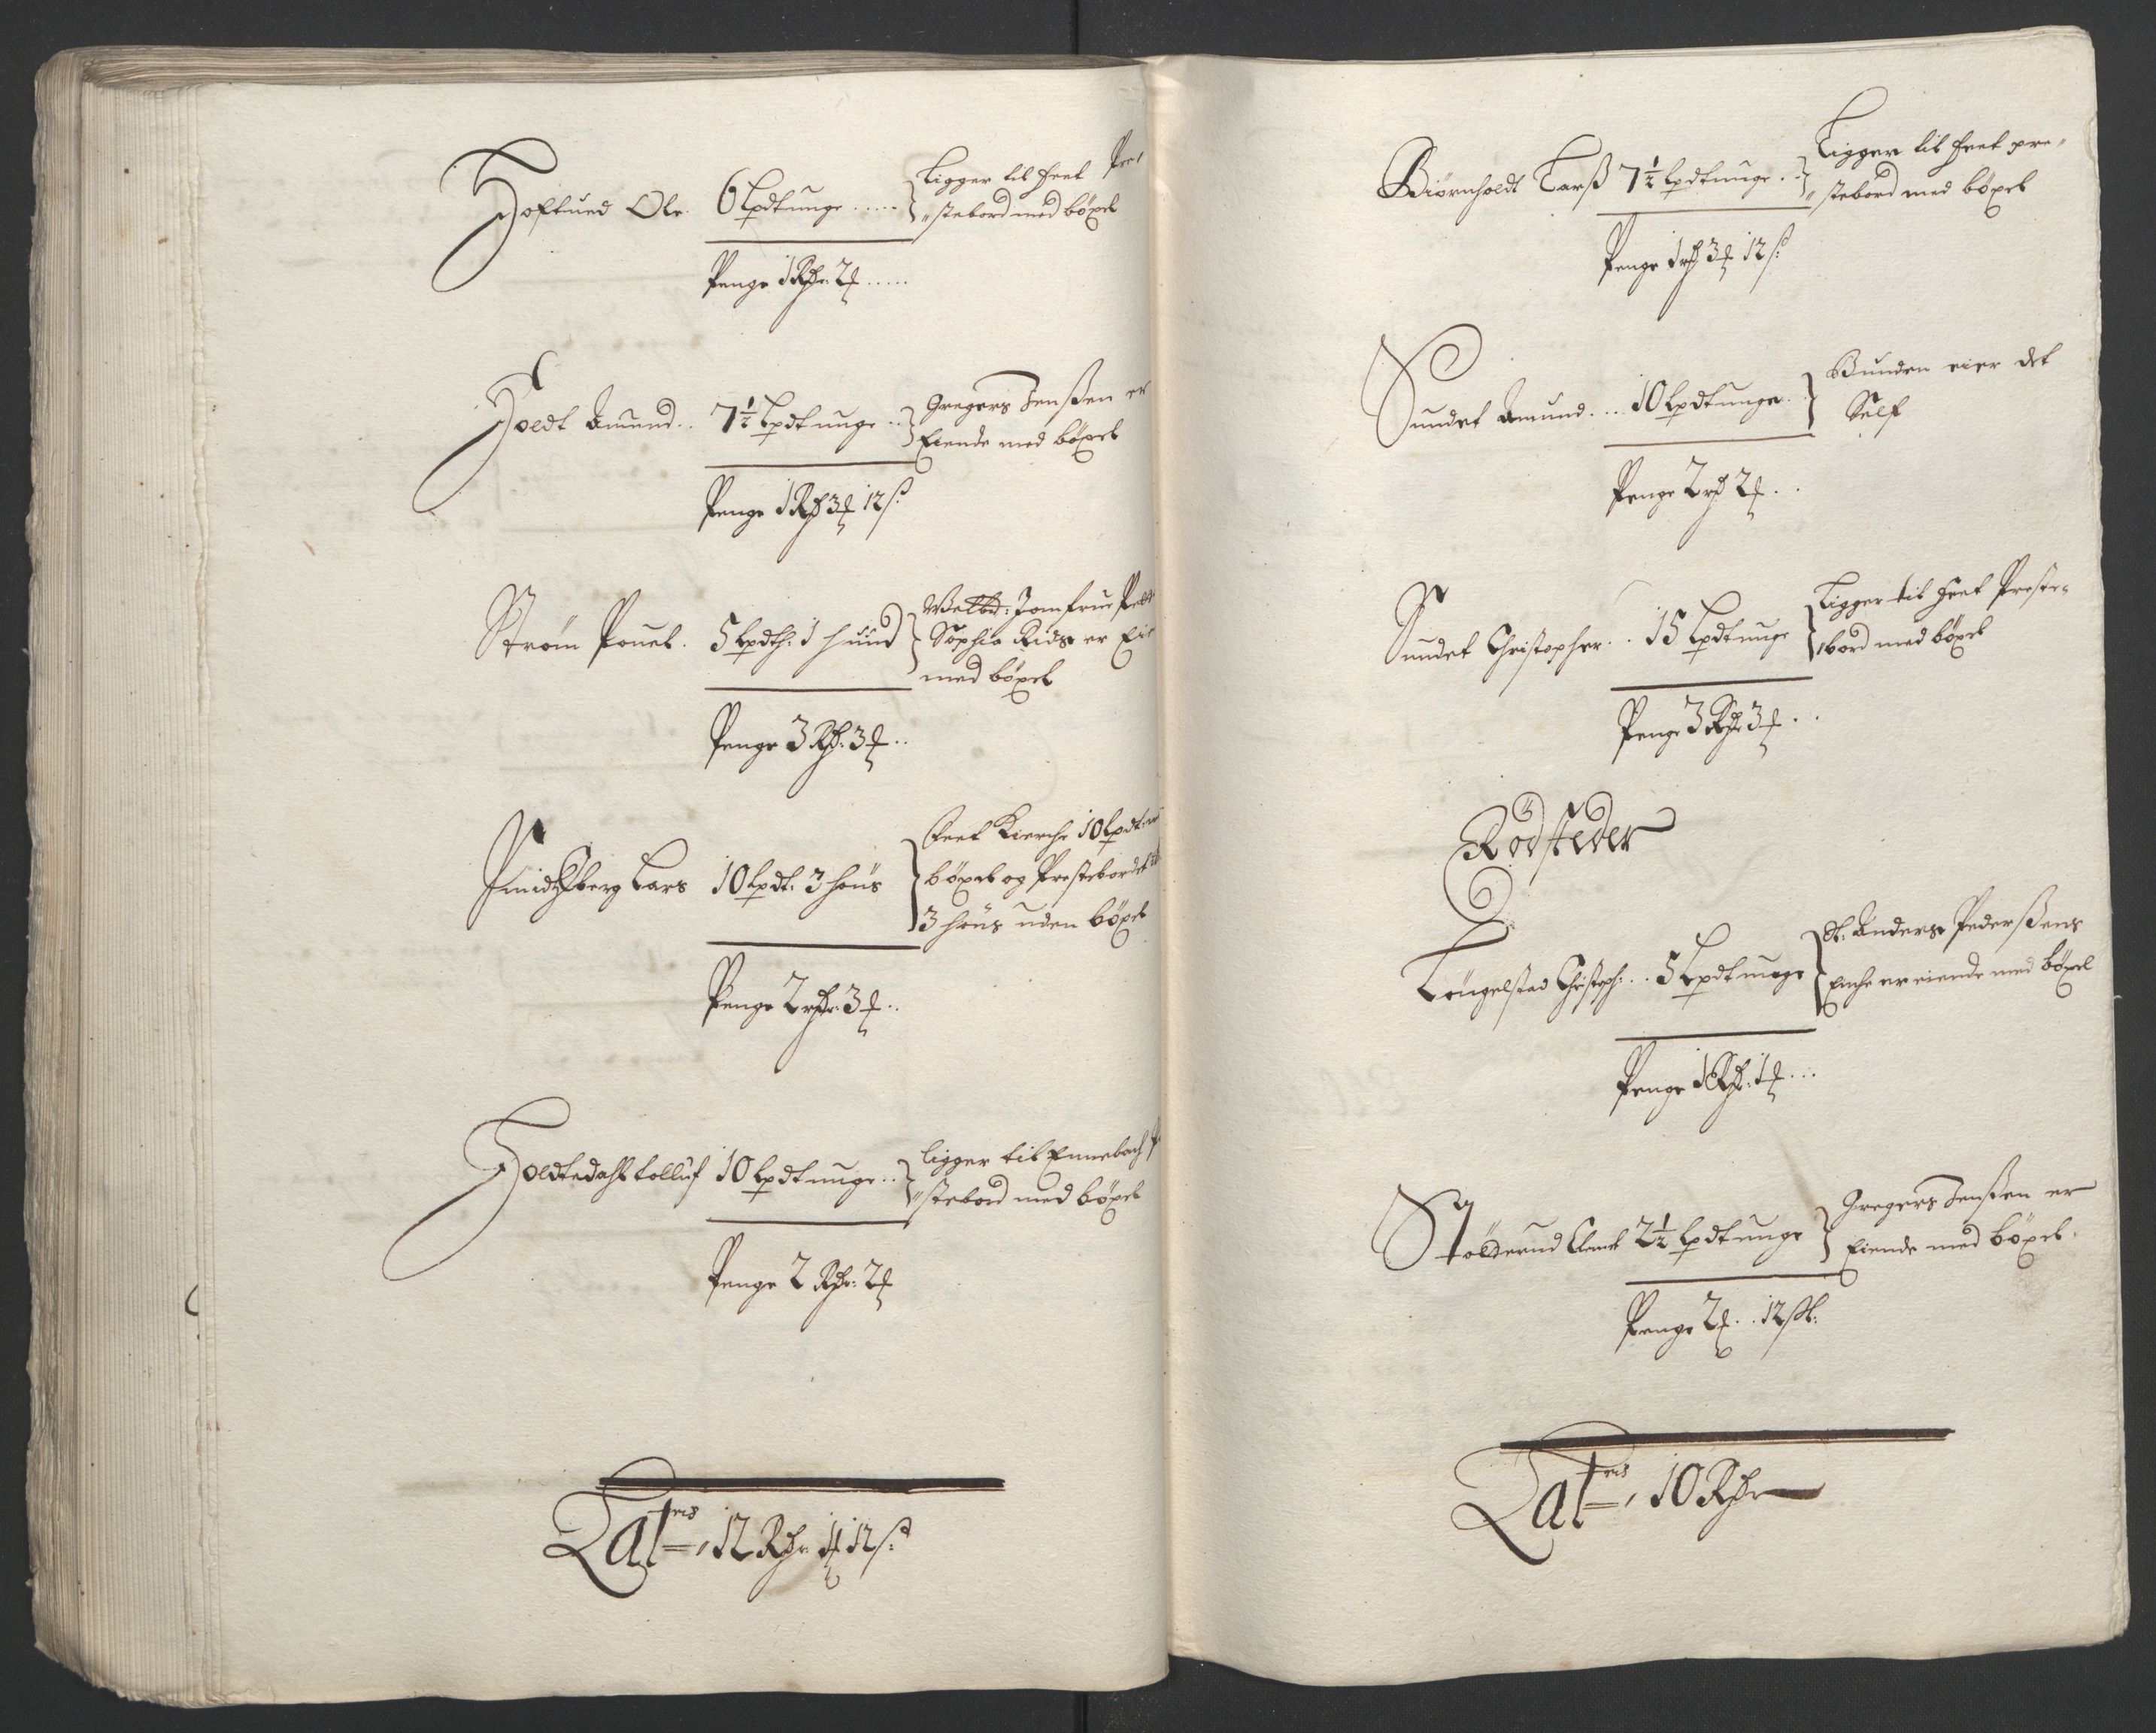 Hoftued Ole. 6 Lpd tunge ..... Ligger til Feet Pre
"stebord med böxel
Penge 1 Rdr. 2 ort .....
Holdt Amund. . 7½ Lpd tunge .. Gregers Jenßen er
Eiende med böxel
Penge 1 Rd 3 ort 12 s:
Ström Pouel. 5 Lpd th: 1 huud Welbd: Jomfrue
Sophia Rids er
med böxel
Penge 3 Rd: 3 ort ..
Smidsberg Lars 10 Lpd t: 3 huus Feet Kierche 10 Lpd
böxel og Prestebordet
3 huus uden böxel
Penge 2 rdr: 3 ort ..
Holdtedahl tolluf 10 Lpd tunge .. ligger til Ennebach
"stebord med böxel
Penge 2 Rdr: 2 ort
Lat ris, 12 Rdr 1 ort 12 s:
Biørnholdt Larß 7½ Lpd tunge .. Ligger til Feet pre"
"stebord med böxel
Penge 1 rd 3 ort 12 s:
Sundet Amund. ... 10 Lpd tunge. Bunden eier det
Self
Penge 2 rd 2 ort . .
Sundet Christopher. . 15 Lpd tunge Ligger til Feet Preste-
bord med böxel
Penge 3 Rdr 3 ort . .
Rödsteder
Töngelstad Christoph: . . 5 Lpd tunge Sl: Anders Pederßens
Enche er eiende med böxel
Penge 1 Rdr: 1 ort ...
Stölderud 2½ Lpd tunge Gregers Jenßen er
Eiende med böxel.
Penge 2 ort . . 12 sk:
Lat ris, 10 Rdr